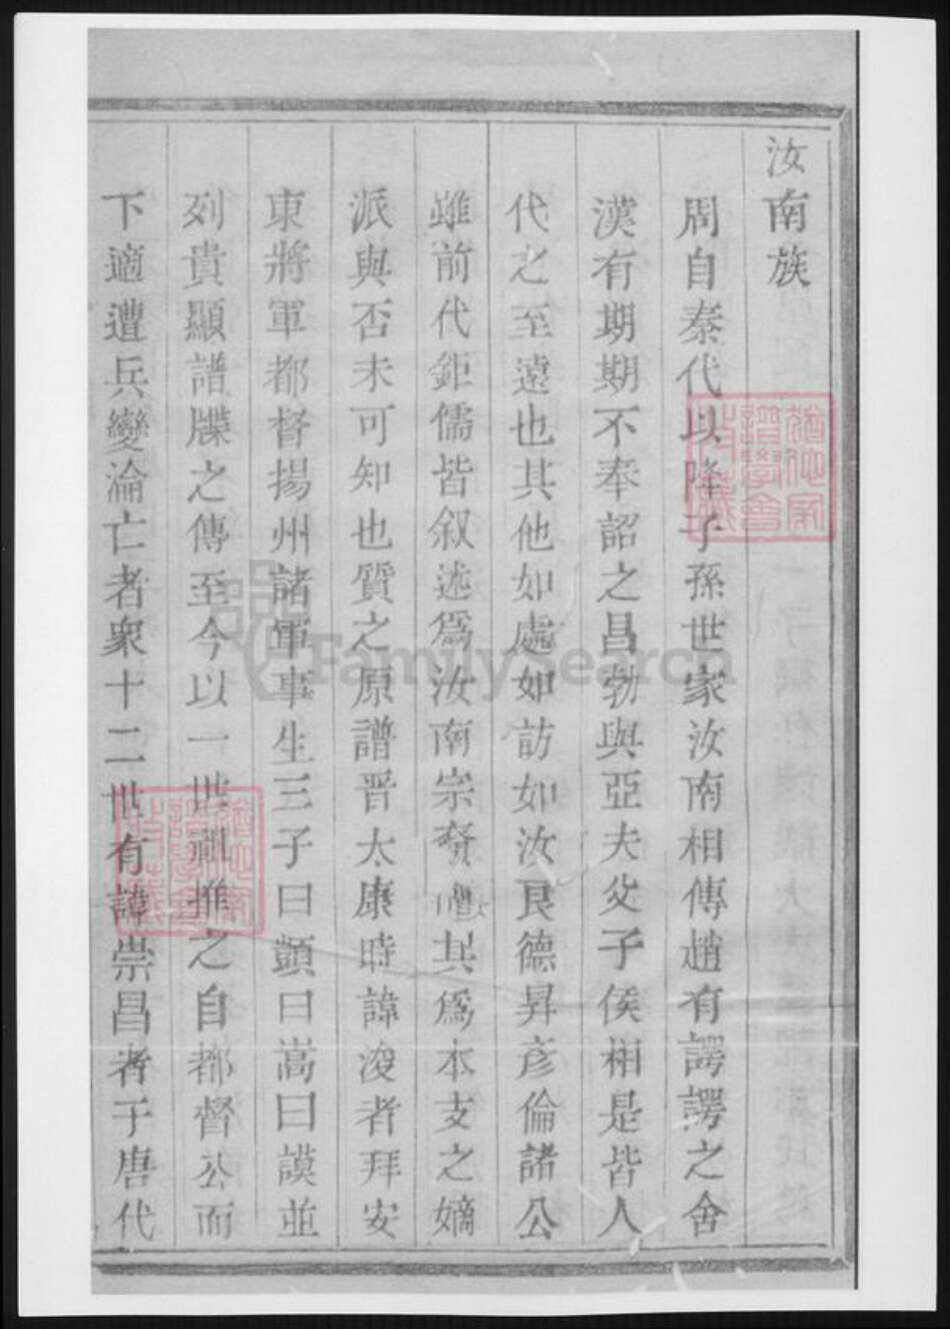 汝南族
周自秦代以降子孫世家汝南相傳趙有諤諤之舍
漢有期期不奉詔之昌勃與亞夫父子侯相是皆人
代之至遠也其他如處如訪如汝良德昇彥倫諸公
雖前代鉅儒皆叙述爲汝南宗其爲本支之嫡
派與否未可知也質之原譜晋太康時諱浚者拜安
東將軍都督揚州諸軍事生三子曰顗曰嵩曰謨並
列貴顯譜牒之傳至今以一世祖推之自都督公而
下適遭兵變淪亡者衆十二世有諱崇昌者于唐代
FamilySearch